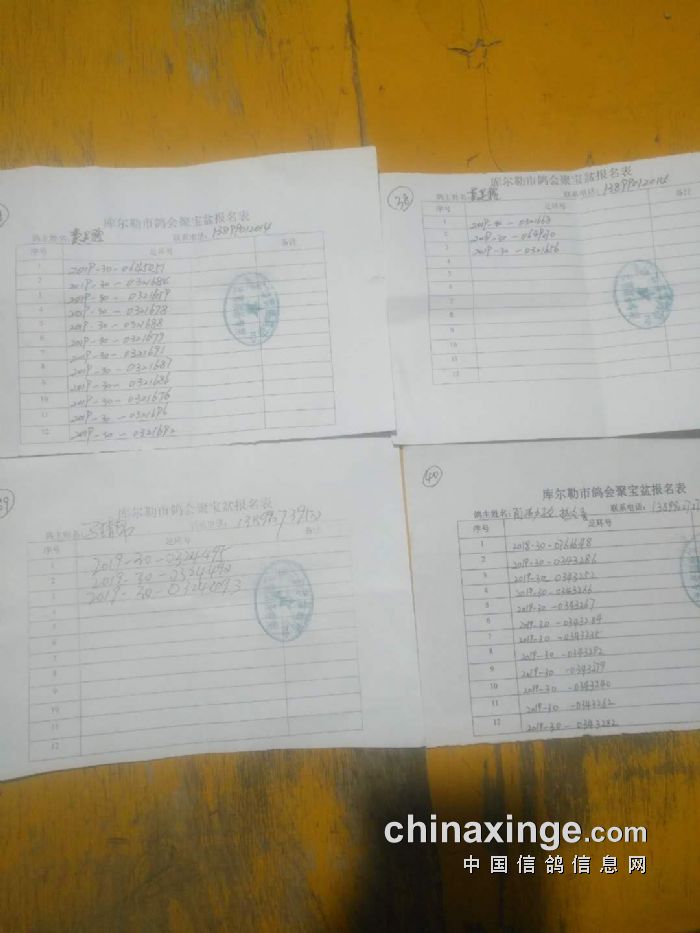 库尔勒市鸽会聚宝盆报名表
鸽主姓名: 联系电话: 13899012014
序号 足环号 备注
1 2019-30-0645057
2 2019-30-0321686
3 2019-30-0321659
4 2019-30-0321678
5 2019-30-0321688
6 2019-30-0321677
7 2019-30-0321691
8 2019-30-0321687
9 2019-30-0321686
10 2019-30-0321676
11 2019-30-0321696
12 2019-30-0321692
38
库尔勒市鸽会聚宝盆报名表
鸽主姓名: 联系电话: 13899012014
序号 足环号 备注
1 2019-30-0321663
2 2019-30-
3 2019-30-0321656
4
5
6
7
8
9
10
11
12
39
库尔勒市鸽会聚宝盆报名表
鸽主姓名: 联系电话:
序号 足环号 备注
1 2019-30-0324495
2 2019-30-0324492
3 2019-30-
4
5
6
7
8
9
10
11
12
40
库尔勒市鸽会聚宝盆报名表
鸽主姓名: 联系电话:
序号 足环号
1 2018-30-0764648
2 2019-30-0343286
3 2019-30-0343252
4 2019-30-0343236
5 2019-30-0343267
6 2019-30-0343284
7 2019-30-0343235
8 2019-30-0343292
9 2019-30-0343279
10 2019-30-0343240
11 2019-30-0343262
12 2019-30-0343282
chinaxinge.com
中国信鸽信息网